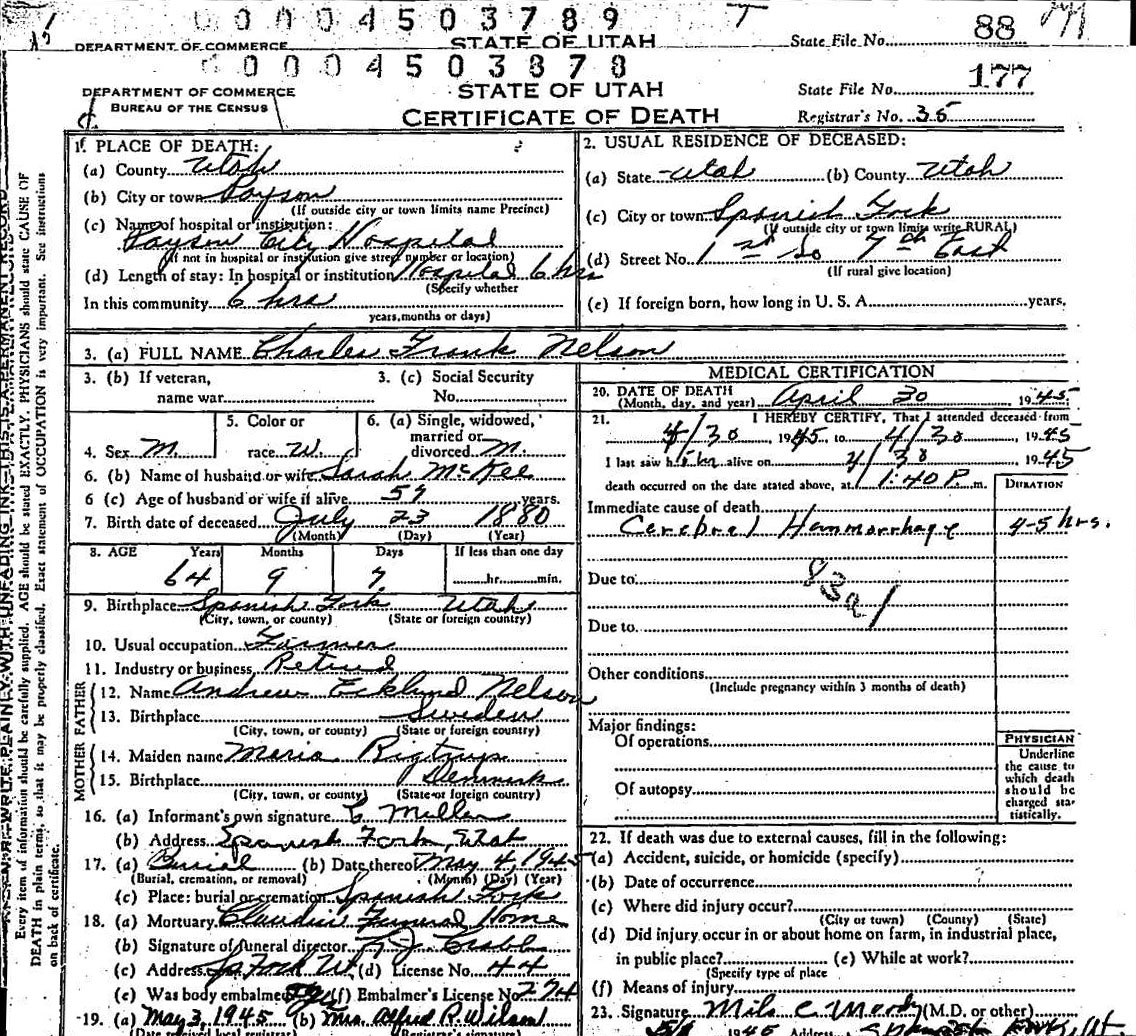 00004503789
DEPARTMENT OF COMMERCE STATE OF UTAH State File No. 88
00004503878
DEPARTMENT OF COMMERCE STATE OF UTAH State File No. 177
BUREAU OF THE CENSUS CERTIFICATE OF DEATH Registrar's No. 35
1. PLACE OF DEATH:
(a) County Utah
(b) City or town Payson
(If outside city or town limits name Precinct)
(c) Name of hospital or institution:
Payson City Hospital
(If not in hospital or institution give street number or location)
(d) Length of stay: In hospital or institution Hospital 6 hrs
(Specify whether
In this community 6 hrs
years, months or days)
2. USUAL RESIDENCE OF DECEASED:
(a) State Utah (b) County Utah
(c) City or town Spanish Fork
(If outside city or town limits write RURAL)
(d) Street No. 1st So 7th East
(If rural give location)
(e) If foreign born, how long in U. S. A. years.
3. (a) FULL NAME Charles Frank Nelson
3. (b) If veteran, 3. (c) Social Security
name war No.
5. Color or 6. (a) Single, widowed,
married or
4. Sex M. race W. divorced M.
6. (b) Name of husband or wife Sarah McKee
6 (c) Age of husband or wife if alive 59 years.
7. Birth date of deceased July 23 1880
(Month) (Day) (Year)
8. AGE Years Months Days If less than one day
64 9 7 hr. min.
9. Birthplace Spanish Fork Utah
(City, town, or county) (State or foreign country)
10. Usual occupation Farmer
11. Industry or business Retired
FATHER
12. Name Andrew Ecklund Nelson
13. Birthplace Sweden
(City, town, or county) (State or foreign country)
MOTHER
14. Maiden name Maria Rigtrup
15. Birthplace Denmark
(City, town, or county) (State or foreign country)
16. (a) Informant's own signature C Miller
(b) Address Spanish Fork, Utah
17. (a) Burial (b) Date thereof May 4, 1945
(Burial, cremation, or removal) (Month) (Day) (Year)
(c) Place: burial or cremation Spanish Fork
18. (a) Mortuary Claudin Funeral Home
(b) Signature of funeral director
(c) Address Sp Fork Ut (d) License No. 44
(e) Was body embalmed (f) Embalmer's License No 274
19. (a) May 3, 1945 (b) Mrs. Alfred R. Wilson
(Date received local registrar) (Registrar's signature)
MEDICAL CERTIFICATION
20. DATE OF DEATH
(Month, day, and year) April 30 1945
21. I HEREBY CERTIFY, That I attended deceased from
4/30 1945 to 4/30 1945
I last saw him alive on 4/30 1945
death occurred on the date stated above, at 1:40 P. m.
DURATION
Immediate cause of death
Cerebral Hammorrhage 4-5 hrs.
Due to 83a/
Due to
Other conditions
(Include pregnancy within 3 months of death)
Major findings:
Of operations
Of autopsy
PHYSICIAN
Underline
the cause to
which death
should be
charged sta-
tistically.
22. If death was due to external causes, fill in the following:
(a) Accident, suicide, or homicide (specify)
(b) Date of occurrence
(c) Where did injury occur?
(City or town) (County) (State)
(d) Did injury occur in or about home on farm, in industrial place,
in public place? (e) While at work?
(Specify type of place
(f) Means of injury
23. Signature Milo C Moody (M.D. or other)
1945 Address
Every item of information should be carefully supplied. AGE should be stated EXACTLY. PHYSICIANS should state CAUSE OF
DEATH in plain terms, so that it may be properly classified. Exact statement of OCCUPATION is very important. See instructions
on back of certificate.